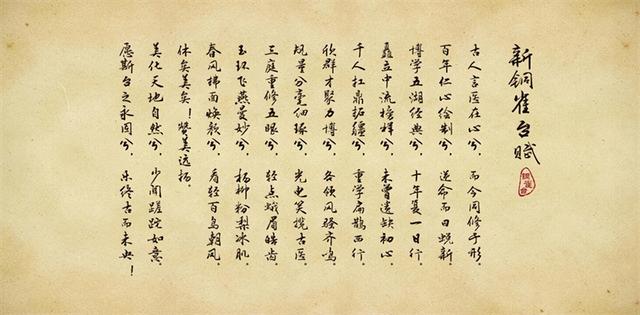 新铜雀台赋
铜雀台
古人言医在心兮，而今同修手形。
百年仁心绘制兮，逆命而日蜕新。
博学五湖经典兮，十年复一日行。
矗立中流榜样兮，未曾遗缺初心。
千人扛鼎拓疆兮，重学扁鹊西行。
欣群才聚力博兮，各领风骚齐鸣。
规量分毫细琢兮，光电笑揽古医。
三庭重修五眼兮，轻点蛾眉皓齿。
玉环飞燕曼妙兮，杨柳粉梨冰肌。
春风拂面焕颜兮，看轻百鸟朝风。
休矣美矣！赞美远扬。
美化天地自然兮，少间蹉跎如意。
愿斯台之永固兮，乐终古而未央！